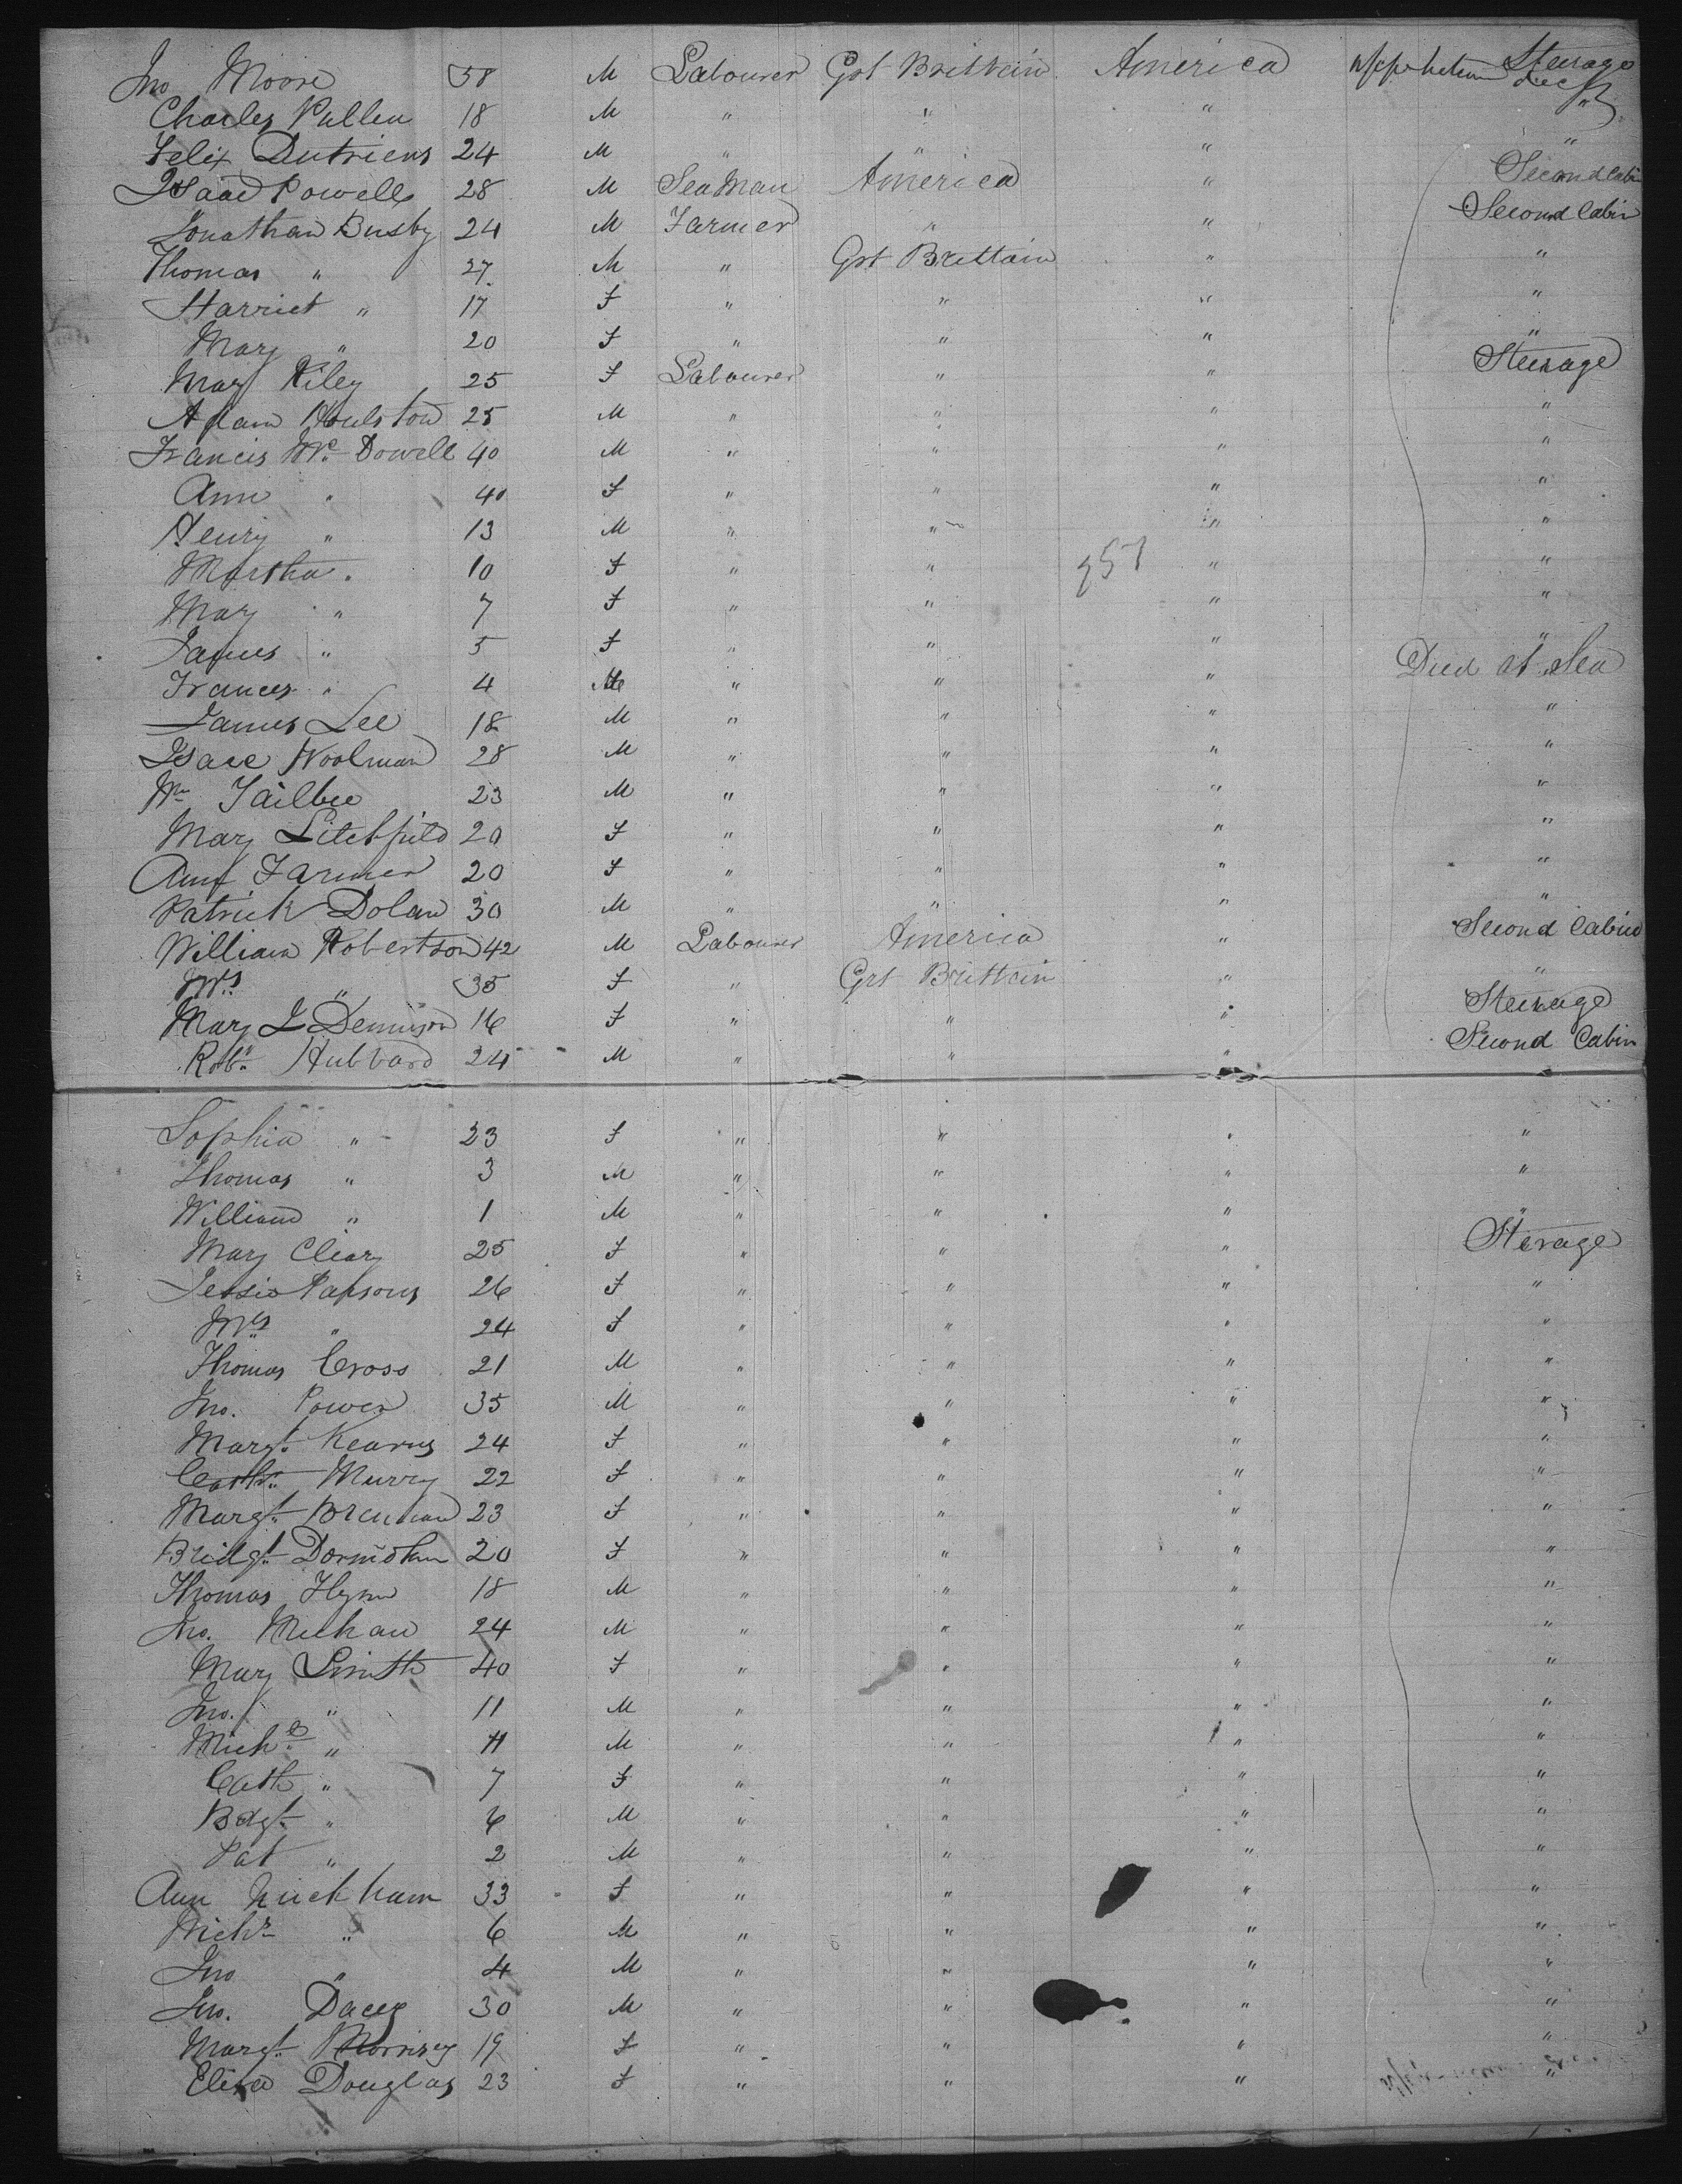 Jno Moore 58 M Labourer Grt Brittain America Upper between Steerage
deck
Charles Pullen 18 M " " " "
Felix Dutriens 24 M " " " "
Isaac Powells 28 M Seaman America " Second Cabi
Jonathan Busby 24 M Farmer " " Second Cabin
Thomas " 27 M " Grt Brittain " "
Harriet " 17 F " " " "
Mary " 20 F " " " "
Mary Riley 25 F Labourer " " Steerage
Adam Houlston 25 M " " " "
Francis Mc Dowell 40 M " " " "
Ann " 40 F " " " "
Henry " 13 M " " " "
Martha " 10 F " " 257 " "
Mary " 7 F " " " "
James " 5 F " " " "
Frances " 4 M " " " Died at Sea
James Lee 18 M " " " "
Isace Woolman 28 M " " " "
Wm Tailbee 23 M " " " "
Mary Litchfield 20 F " " " "
Ann Farmer 20 F " " " "
Patrick Dolan 30 M " " " "
William Robertson 42 M Labourer America " Second Cabin
Mrs " 35 F " Grt Brittain " "
Mary J Dennison 16 F " " " Steerage
Robt Hubbard 24 M " " " Second Cabin
Sophia " 23 F " " " "
Thomas " 3 M " " " "
William " 1 M " " " "
Mary Cleary 25 F " " " Sterage
Jessie Parsons 26 F " " " "
Mrs " 24 F " " " "
Thomas Cross 21 M " " " "
Jno. Power 35 M " " " "
Margt Kearns 24 F " " " "
Cathr Murry 22 F " " " "
Margt Brennan 23 F " " " "
Bridgt Dormohan 20 F " " " "
Thomas Flynn 18 M " " " "
Jno. Meehan 24 M " " " "
Mary Smith 40 F " " " "
Jno. " 11 M " " " "
Michl " 11 M " " " "
Cath " 7 F " " " "
Bdgt " 6 M " " " "
Pat " 2 M " " " "
Ann 33 F " " " "
Michl " 6 M " " " "
Jno " 4 M " " " "
Jno. Dacey 30 M " " " "
Margt Morrisey 19 F " " " "
Eliza Douglas 23 F " " " "